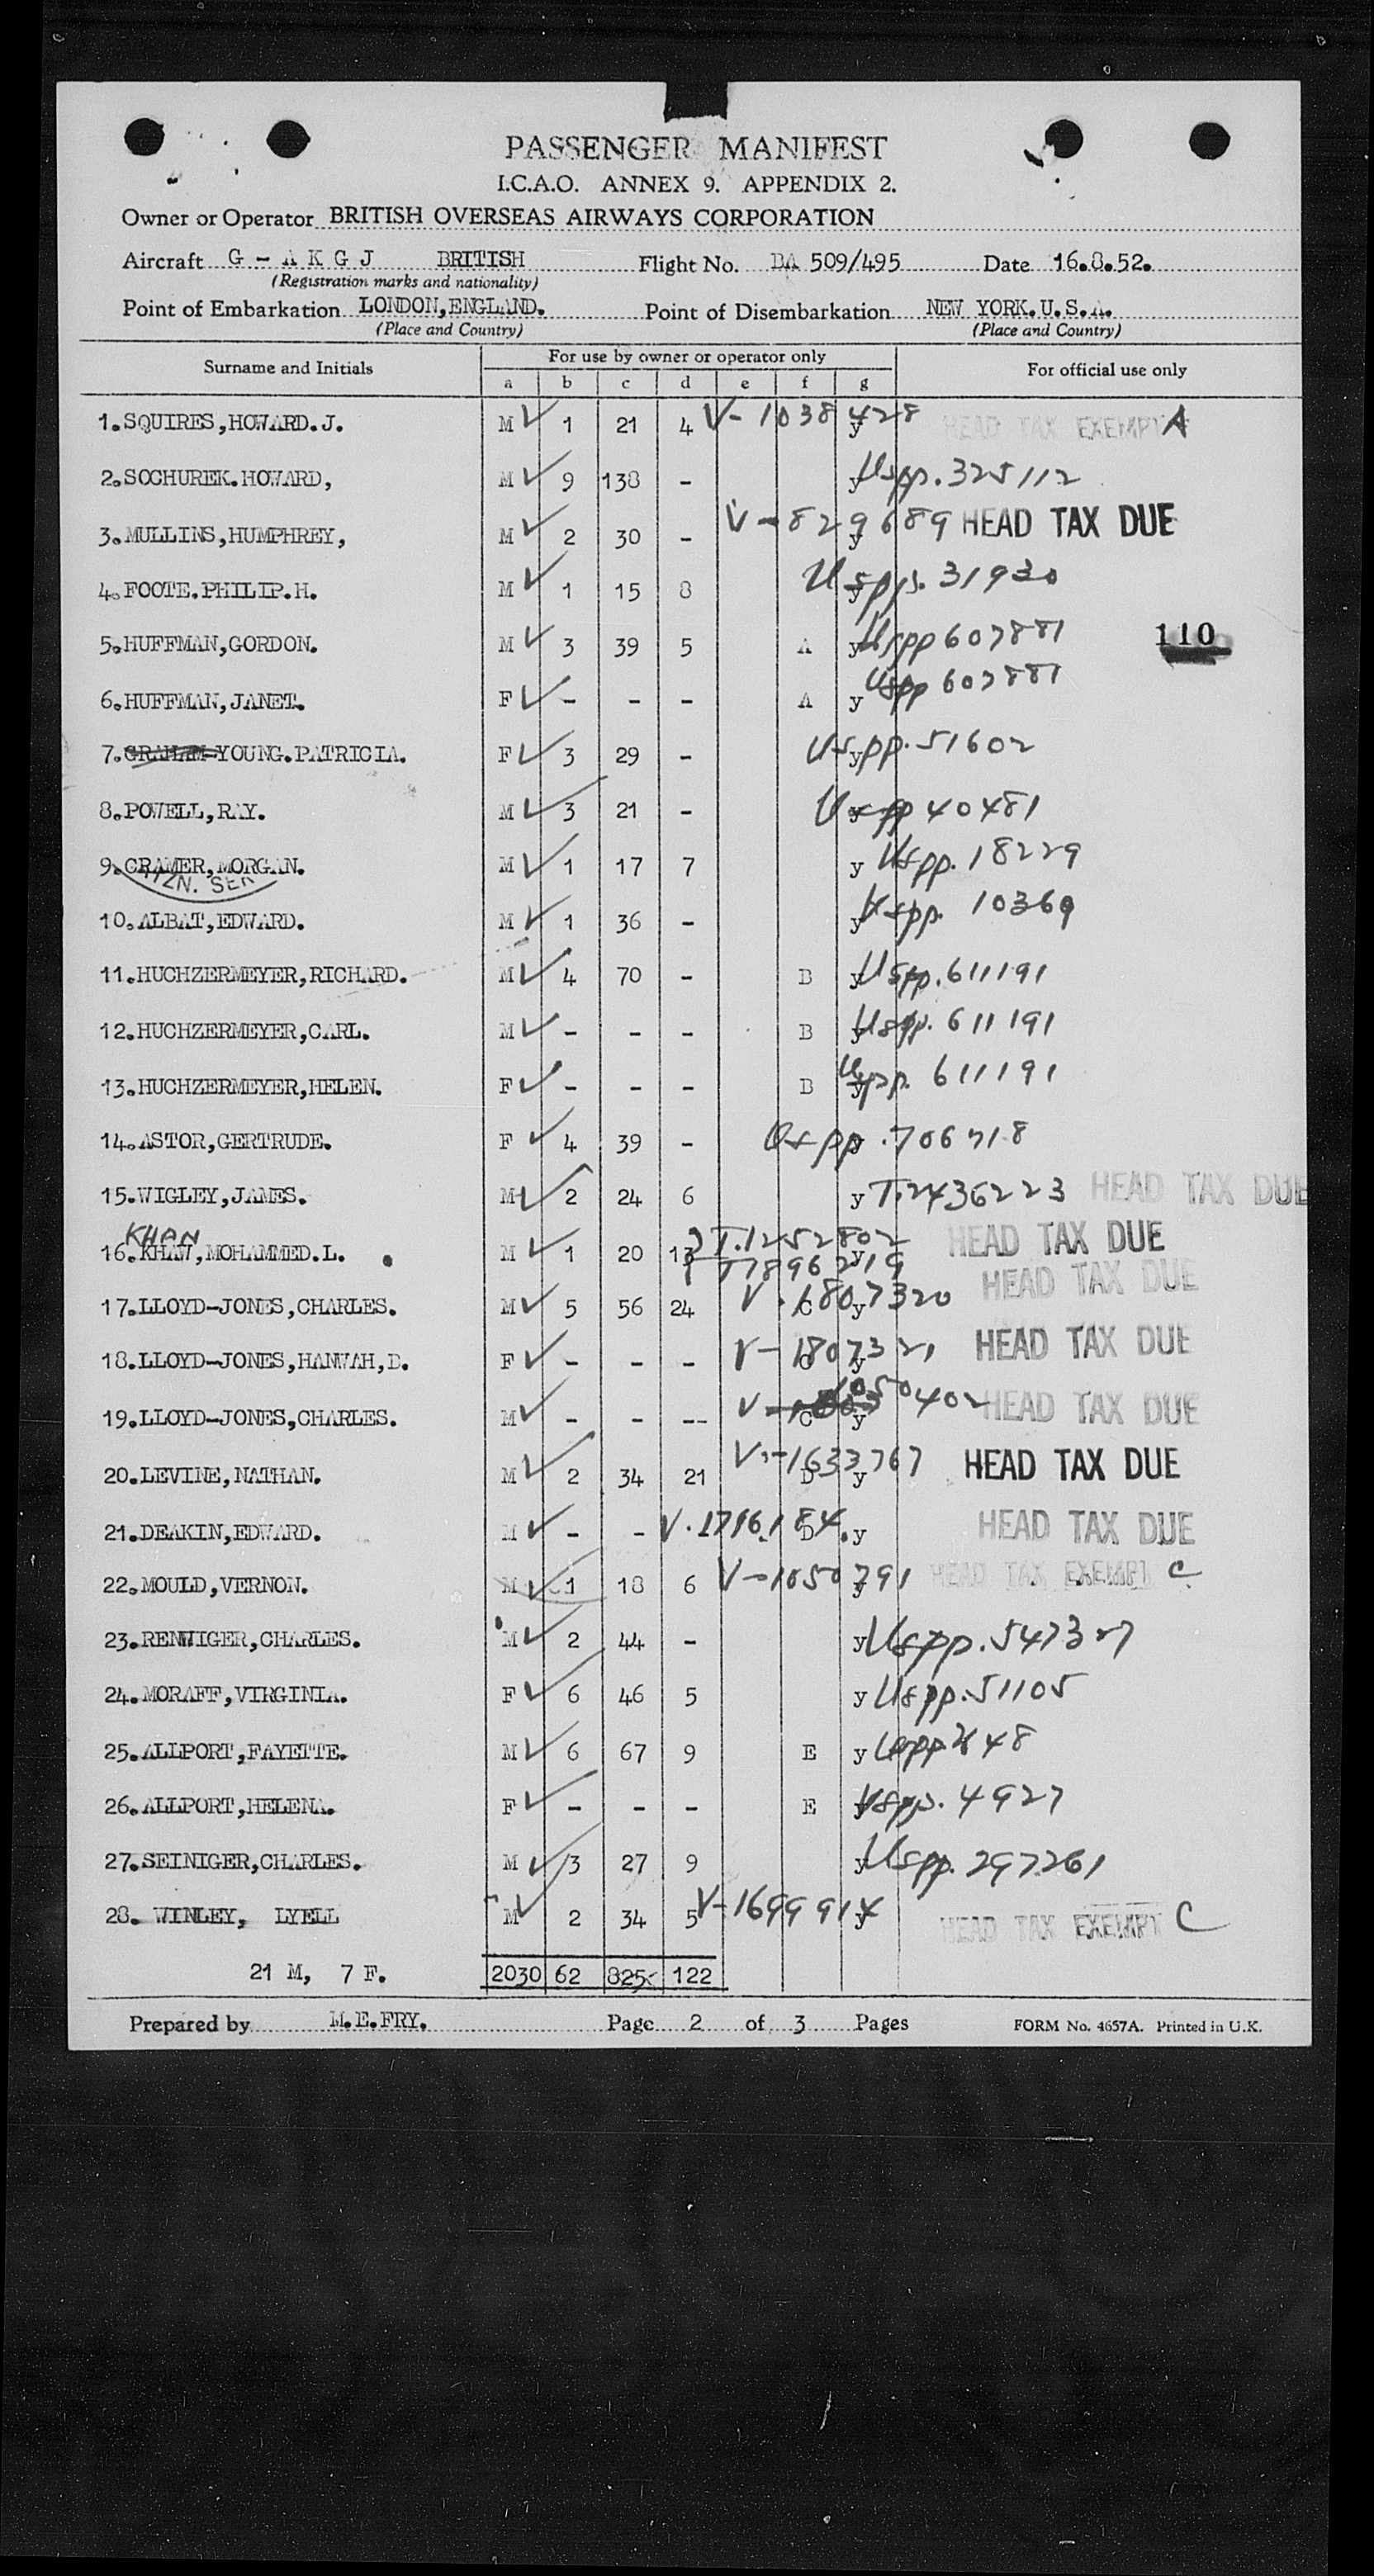 PASSENGER MANIFEST
I.C.A.O. ANNEX 9. APPENDIX 2.
Owner or Operator BRITISH OVERSEAS AIRWAYS CORPORATION
Aircraft G - A K G J BRITISH Flight No. BA 509/495 Date 16.8.52.
(Registration marks and nationality)
Point of Embarkation LONDON,ENGLAND. Point of Disembarkation NEW YORK.U.S.A.
(Place and Country) (Place and Country)
Surname and Initials For use by owner or operator only For official use only
a b c d e f g
1.SQUIRES,HOWARD.J. M ✓ 1 21 4 V-1038428 y HEAD TAX EXEMPT A
2.SOCHUREK.HOWARD, M ✓ 9 138 - y Uspp.325112
3.MULLINS,HUMPHREY, M ✓ 2 30 - V-829689 y HEAD TAX DUE
4.FOOTE.PHILIP.H. M ✓ 1 15 8 y Uspp.31930
5.HUFFMAN,GORDON. M ✓ 3 39 5 A y Uspp 607881 110
6.HUFFMAN,JANET. F ✓ - - - A y Uspp 607881
7.GRAHAM-YOUNG.PATRICIA. F ✓ 3 29 - y Uspp.51602
8.POWELL,RAY. M ✓ 3 21 - y Uspp 40481
9.CRAMER,MORGAN. M ✓ 1 17 7 y Uspp.18229
10.ALBAT,EDWARD. M ✓ 1 36 - y Uspp. 10369
11.HUCHZERMEYER,RICHARD. M ✓ 4 70 - B y Uspp.611191
12.HUCHZERMEYER,CARL. M ✓ - - - B y Uspp. 611191
13.HUCHZERMEYER,HELEN. F ✓ - - - B y Uspp. 611191
14.ASTOR,GERTRUDE. F ✓ 4 39 - y Uspp.706718
15.WIGLEY,JAMES. M ✓ 2 24 6 y T.2436223 HEAD TAX DUE
KHAN
16.KHAW,MOHAMMED.L. M ✓ 1 20 13 T.1252802 y HEAD TAX DUE
T1896219 HEAD TAX DUE
17.LLOYD-JONES,CHARLES. M ✓ 5 56 24 V.1807320 C y
18.LLOYD-JONES,HANNAH,D. F ✓ - - - V-1807321 C y HEAD TAX DUE
19.LLOYD-JONES,CHARLES. M ✓ - - -- V- 1050402 C y HEAD TAX DUE
20.LEVINE,NATHAN. M ✓ 2 34 21 V-1633767 D y HEAD TAX DUE
21.DEAKIN,EDWARD. M ✓ - - V.1716184. D y HEAD TAX DUE
22.MOULD,VERNON. M ✓ 1 18 6 V-1050791 y HEAD TAX EXEMPT C
23.RENWIGER,CHARLES. M ✓ 2 44 - y Uspp.547327
24.MORAFF,VIRGINIA. F ✓ 6 46 5 y Uspp.51105
25.ALLPORT,FAYETTE. M ✓ 6 67 9 E y
26.ALLPORT,HELENA. F ✓ - - - E y Uspp. 4927
27.SEINIGER,CHARLES. M ✓ 3 27 9 y Uspp.297261
28. WINLEY, LYELL M ✓ 2 34 5 V-1699914 y HEAD TAX EXEMPT C
21 M, 7 F. 2030 62 825 122
Prepared by M.E.FRY. Page 2 of 3 Pages FORM No. 4657A. Printed in U.K.